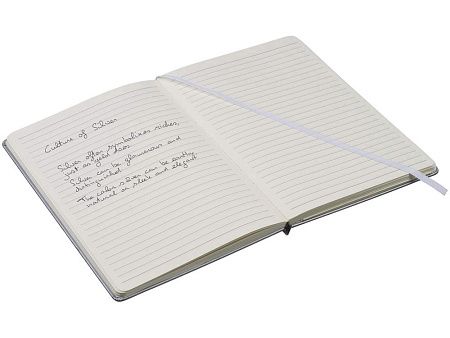 Culture of Silver
Silver often symbolizes riches,
just as gold does.
Silver can be glamorous and
distinguished.
The color silver can be earthy,
natural or sleek and elegant